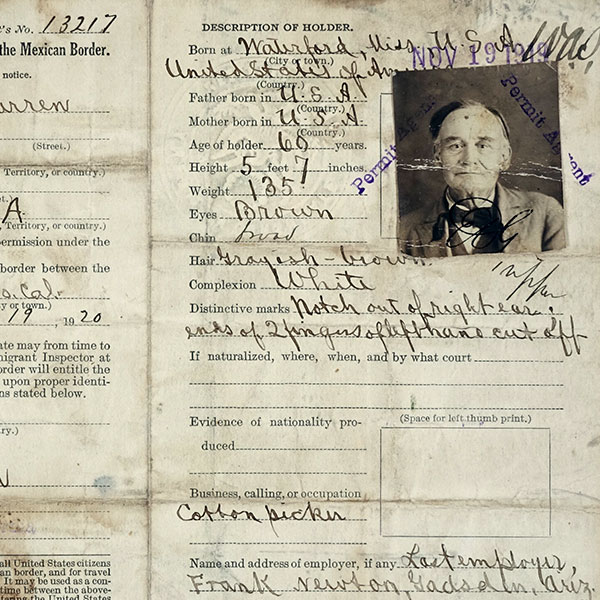 's No. 13217
the Mexican Border.
notice.
arren
(Street.)
Territory, or country.)
et.)
A.
Territory, or country.)
ermission under the
border between the
Cal.
y or town.)
19, 1920
ate may from time to
migrant Inspector at
order will entitle the
upon proper identi-
ns stated below.
ry.)
all United States citizens
an border, and for travel
It may be used as a con-
time between the above-
DESCRIPTION OF HOLDER.
Born at Waterford, Miss, U.S.A.
(City or town.)
NOV 19 1919
United States of Am
(Country.)
Father born in U.S.A.
(Country.)
Mother born in U.S.A.
(Country.)
Age of holder 60 years.
Height 5 feet 7 inches.
Weight 135
Eyes Brown
Chin broad
Hair Grayesh-brown
Complexion White
Permit Agent
Permit Agent
Distinctive marks Notch out of right ear;
ends of 2 fingers of left hand cut off
If naturalized, where, when, and by what court
Evidence of nationality pro-
duced
(Space for left thumb print.)
Business, calling, or occupation
Cotton picker
Name and address of employer, if any Last employer,
Frank Newton, Gadsden, Ariz.